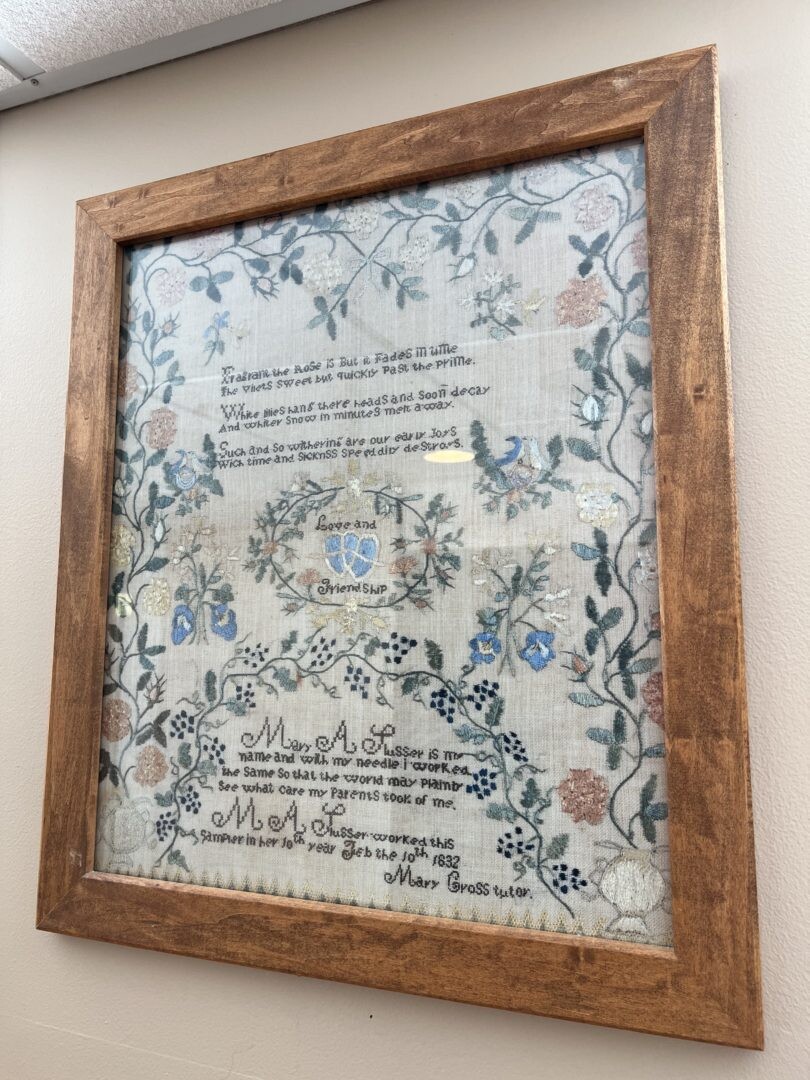 Fragrant the Rose is But it Fades in time
The Vilets Sweet but quickly Past the Prime.
White lilies hang there heads and soon decay
And whiter Snow in minutes melt away.
Such and So withering are our early Joys
Wich time and Sicknss Speedily destroys.
Love and
Friendship
Mary A Susser is my
name and with my needle i worked
the Same So that the world may Plainly
See what care my Parents took of me,
M A Susser worked this
Sampler in her 10th year Feb the 10th 1832
Mary Gross tutor.